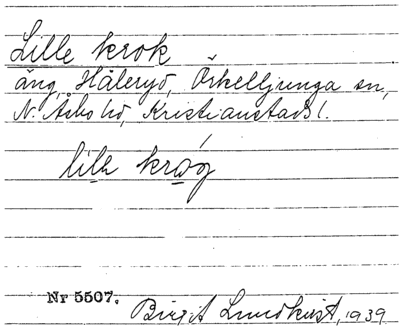 Lille krok
äng, Håleryd, Örkelljunga sn,
N. Åsbo hd, Kristianstads l.
lilə krǫ́g
Nr 5507.
Birgit Lundkvist, 1939